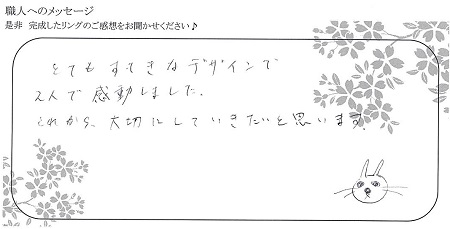 職人へのメッセージ
是非 完成したリングのご感想をお聞かせください♪
とてもすてきなデザインで
2人で感動しました.
これから、大切にしていきたいと思います.